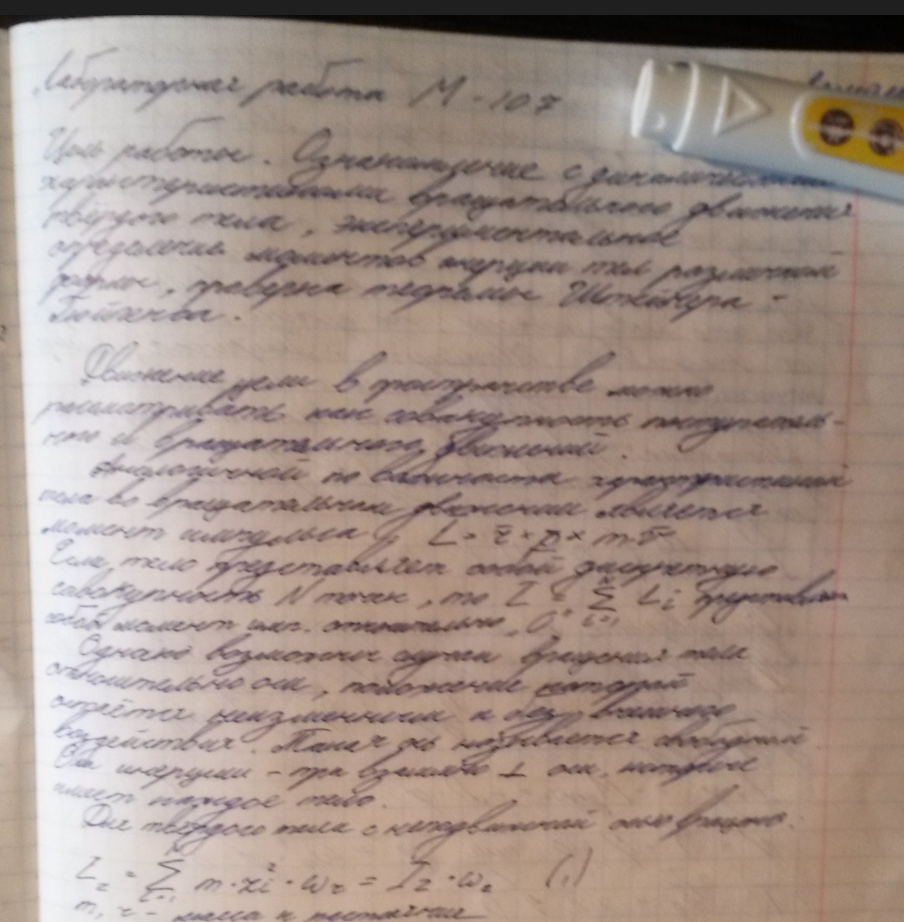 Лабораторная работа М-107
Цель работы. Ознакомление с динамическими
характеристиками вращательного движения
твёрдого тела, экспериментальное
определение моментов инерции тел различной
формы, проверка теоремы Штейнера -
Гюйгенса.
Движение цели в пространстве можно
рассматривать как совокупность поступатель-
ного и вращательного движений.
Аналогичной по характеристикой
тела во вращательном движении является
момент импульса L = r̄ × p̄ × m·v̄
Если тело представляет собой дискретную
совокупность N точек, то L = Σ Li представляет
собой момент имп. относительно "O"
Однако возможны случаи вращения тела
относительно оси, положение которой
остаётся неизменным и без внешнего
воздействия. Такая ось называется свободной
Оси инерции - три взаимно ⊥ оси, которые
имеет каждое тело.
Для твёрдого тела с неподвижной осью вращ.
L_z = Σ m·r_i²·ω_z = I_z·ω_z (1)
m, r - масса и расстояние